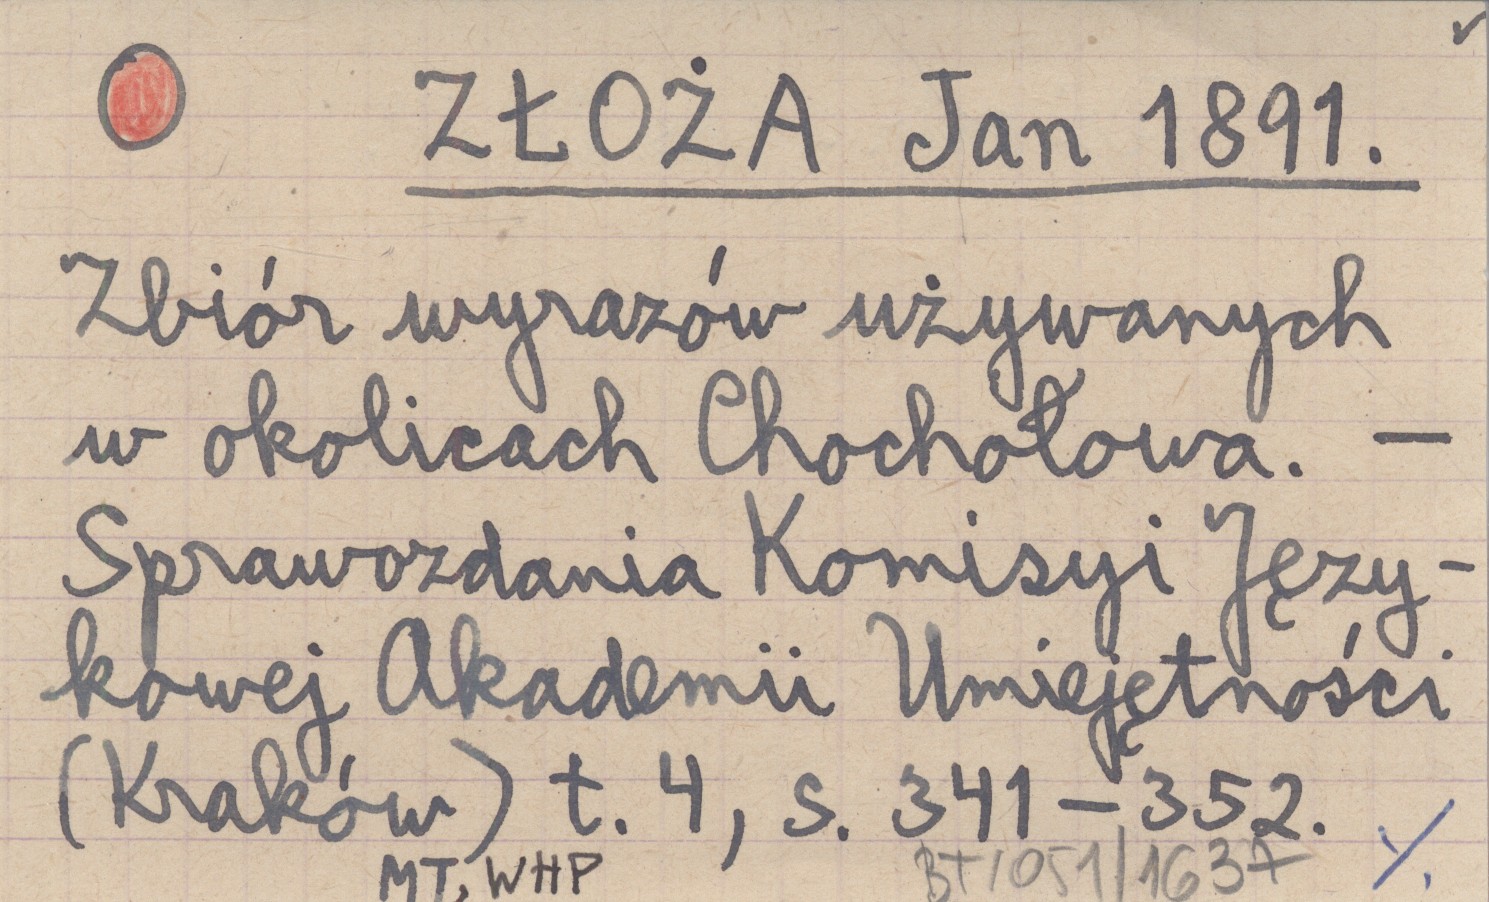 ZŁOŻA Jan 1891.
Zbiór wyrazów używanych
w okolicach Chochołowa. —
Sprawozdania Komisyi Języ-
kowej Akademii Umiejętności
(Kraków) t. 4, s. 341–352.
MT, WHP